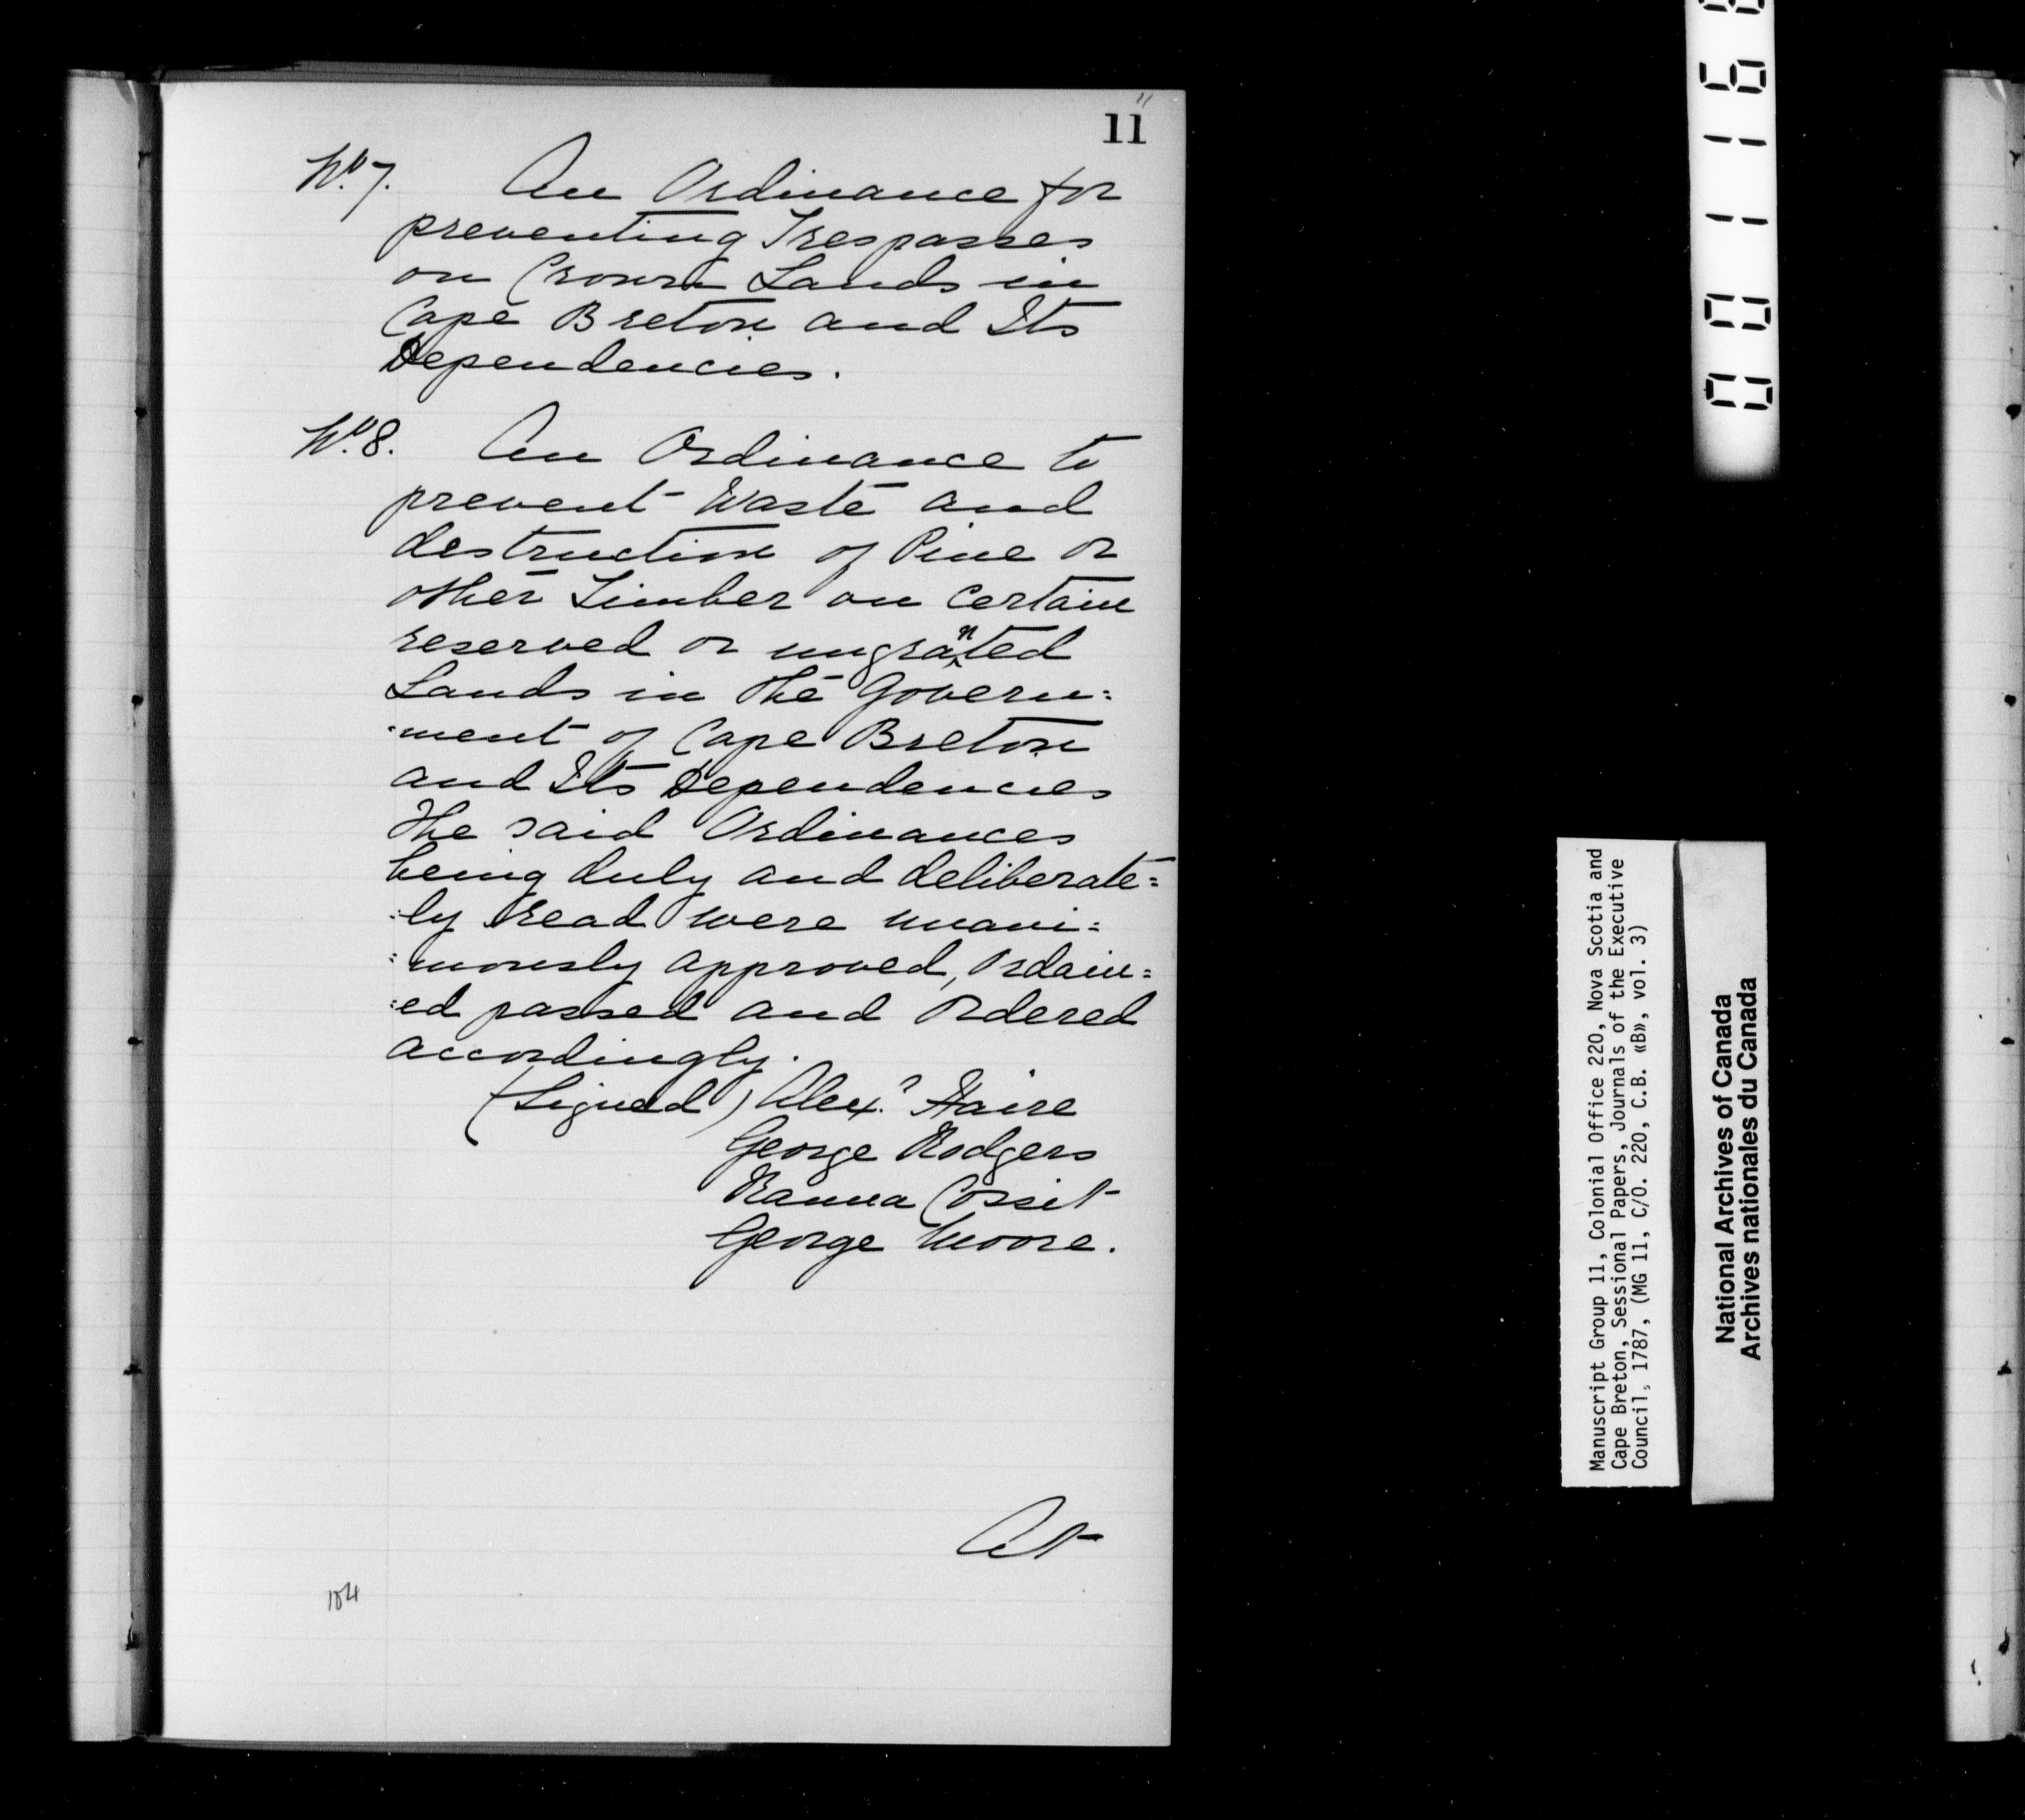 11
11
No. 7. An Ordinance for
preventing Trespasses
on Crown Lands in
Cape Breton and Its
Dependencies.
No. 8. An Ordinance to
prevent Waste and
destruction of Pine or
other Timber on Certain
reserved or ungranted
Lands in the Govern=
=ment of Cape Breton
and Its Dependencies
The said Ordinances
being duly and deliberate=
=ly read were unani=
=mously approved, Ordain=
=ed passed and Ordered
accordingly.
(Signed) Alexr Haire
George Rodgers
Ranna Cossit
George Moore.
At
184
Manuscript Group 11, Colonial Office 220, Nova Scotia and
Cape Breton, Sessional Papers, Journals of the Executive
Council, 1787, (MG 11, C/O. 220, C.B. «B», vol. 3)
National Archives of Canada
Archives nationales du Canada